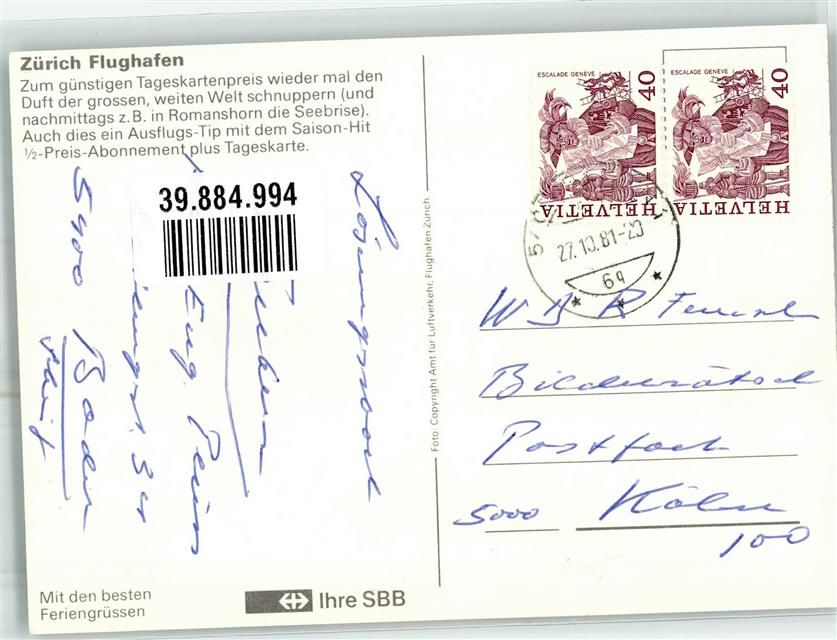 Zürich Flughafen
Zum günstigen Tageskartenpreis wieder mal den
Duft der grossen, weiten Welt schnuppern (und
nachmittags z.B. in Romanshorn die Seebrise).
Auch dies ein Ausflugs-Tip mit dem Saison-Hit
½-Preis-Abonnement plus Tageskarte.
39.884.994
Lösungswort
Eug.
34
5400 Baden
Mit den besten
Feriengrüssen
Ihre SBB
Foto: Copyright Amt für Luftverkehr, Flughafen Zürich.
ESCALADE GENÈVE
40
HELVETIA
ESCALADE GENÈVE
40
HELVETIA
27.10.81-20
6q
W D R
Bilderrätsel
Postfach
5000 Köln
100